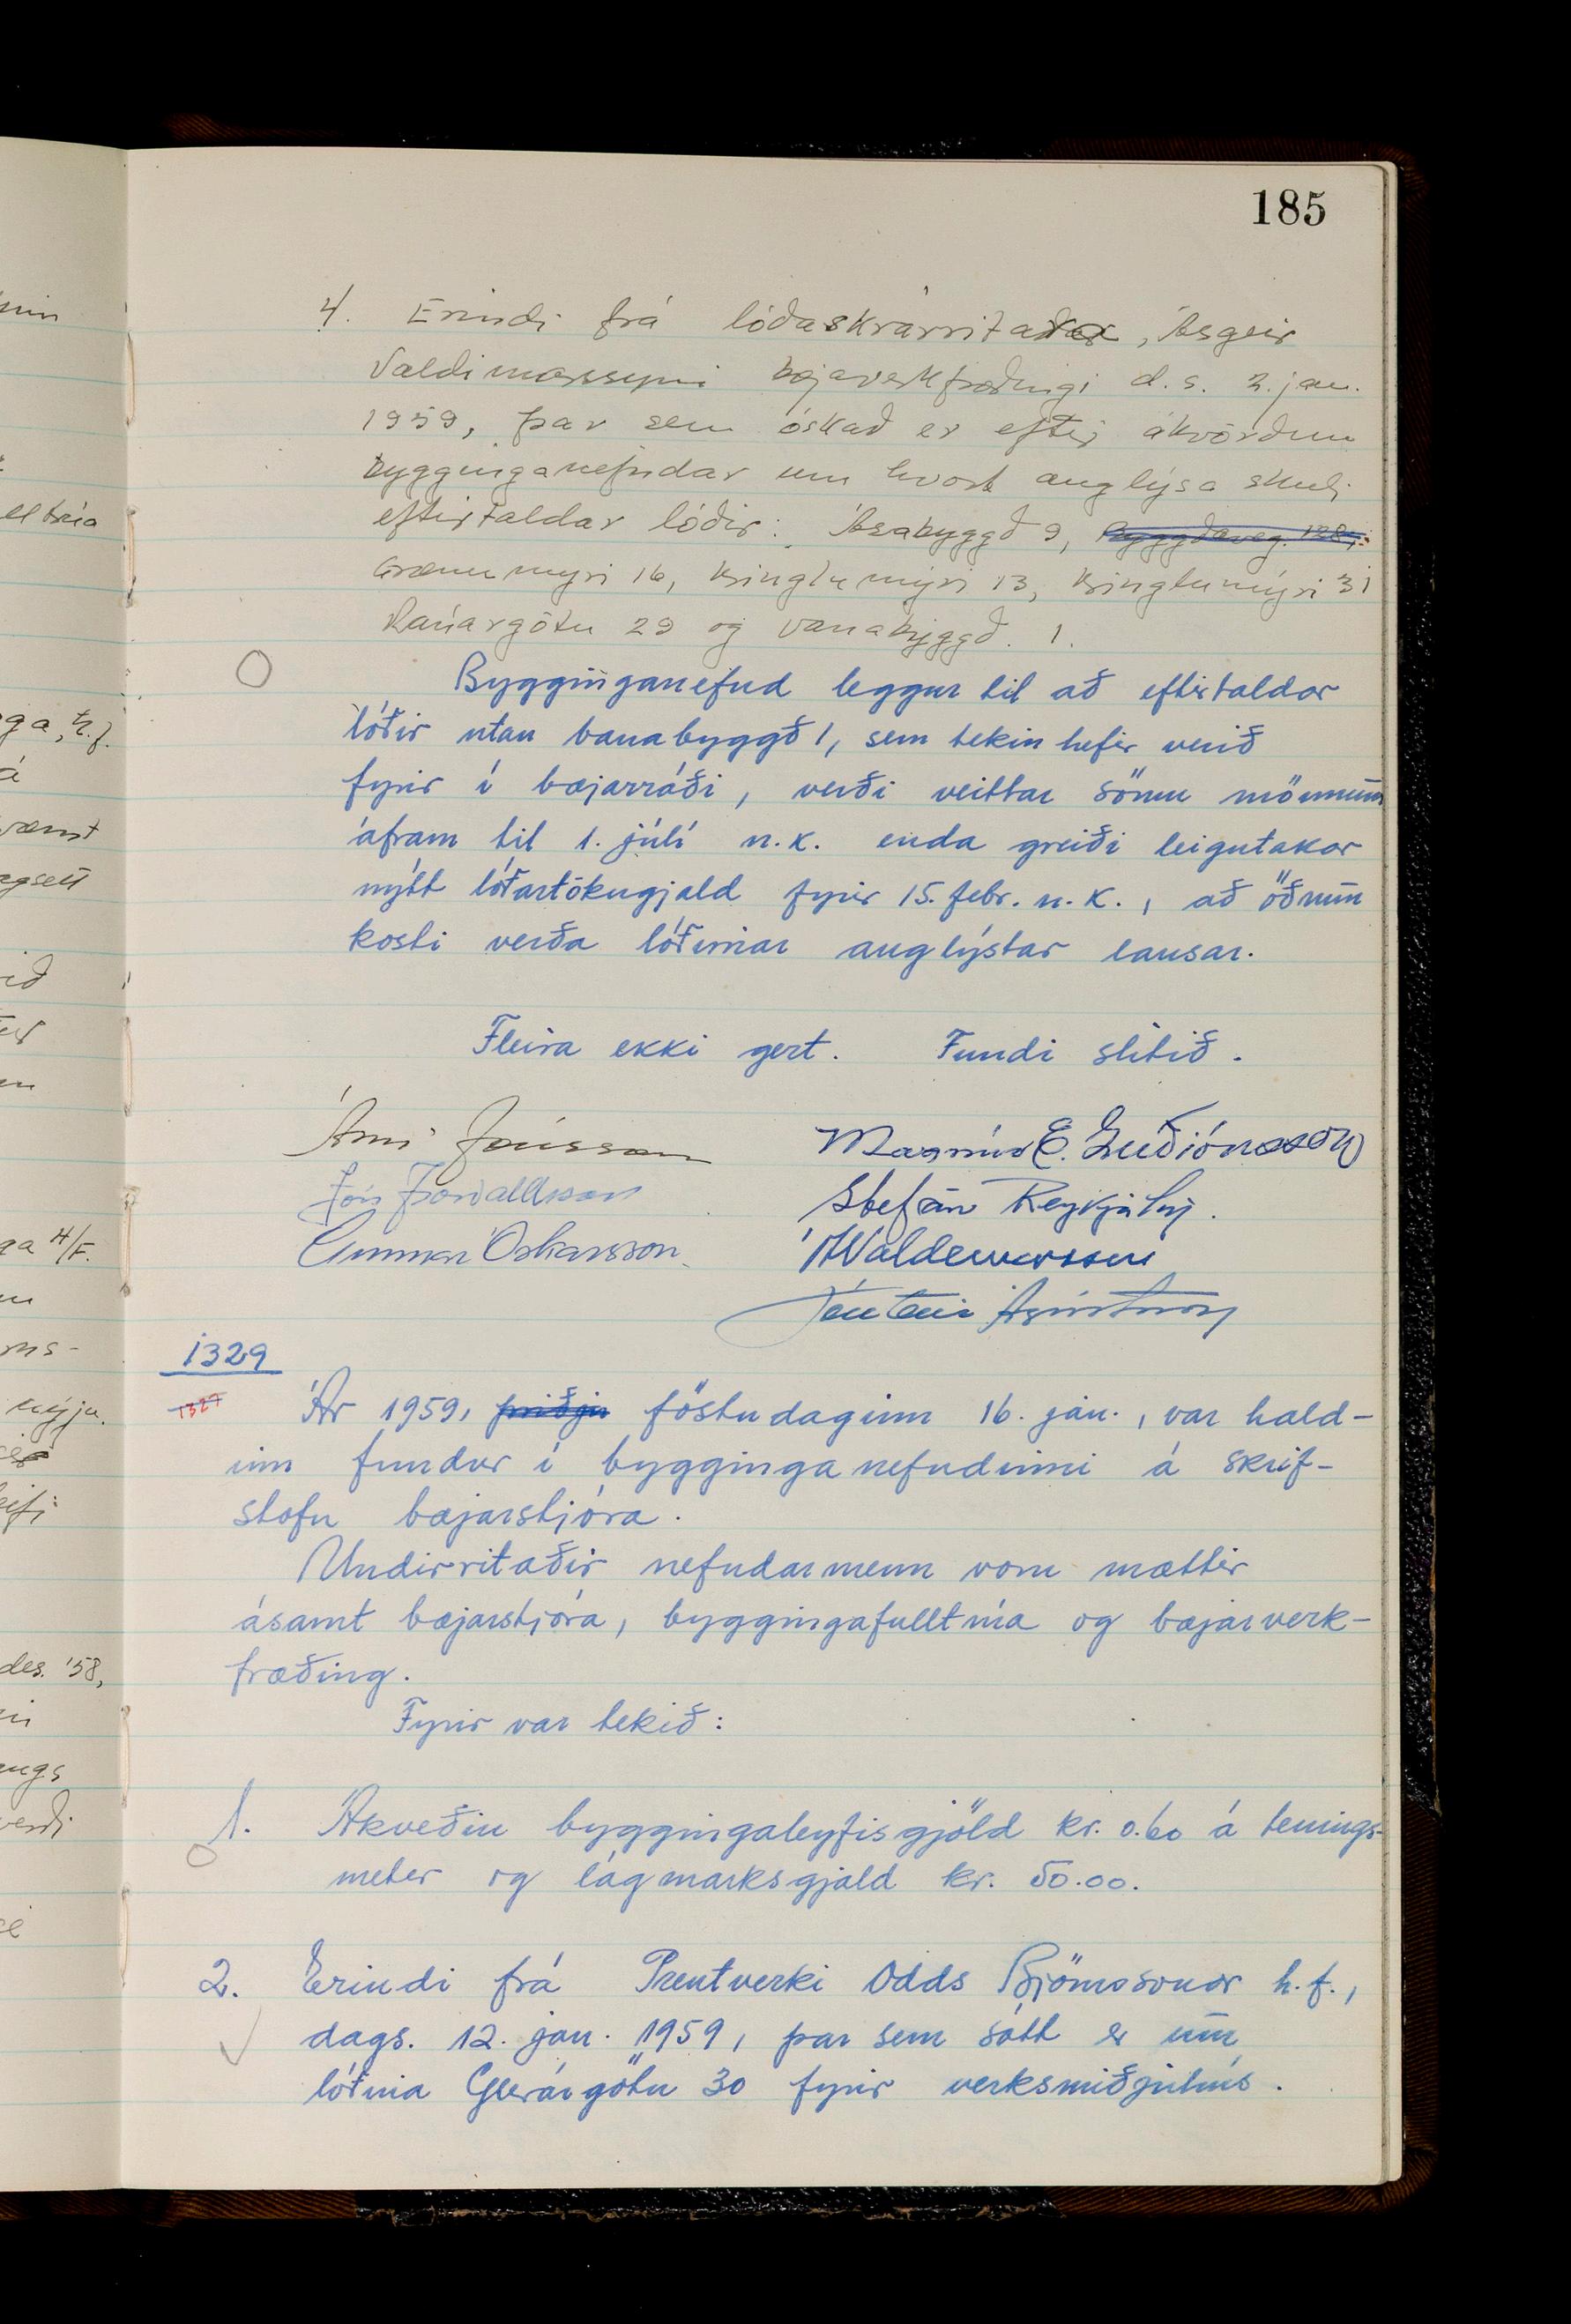 185
4. Erindi frá lóðaskrárritara, Ásgeir
Valdimarssyni bæjarverkfræðingi d.s. 2. jan.
1959, þar sem óskað er eftir ákvörðun
bygginganefndar um hvort auglýsa skuli
eftirtaldar lóðir: Ásabyggð 9, Byggðaveg. 128,
Grænumýri 16, Kringlumýri 13, Kringlumýri 31
Ránargötu 29 og Vanabyggð. 1.
Bygginganefnd leggur til að eftirtaldar
lóðir utan Vanabyggð 1, sem tekin hefir verið
fyrir í bæjarráði, verði veittar sömu mönnum
áfram til 1. júlí n.k. enda greiði leigutakar
nýtt lóðartökugjald fyrir 15. febr. n.k., að öðrum
kosti verða lóðirnar auglýstar lausar.
Fleira ekki gert. Fundi slitið.
Árni Jónsson Magnús E. Guðjónsson
Jón Þorvaldsson Stefán Reykjalín.
Gunnar Óskarsson Á Valdemarsson
Ágústsson
1329
1327 Ár 1959, þriðju föstudaginn 16. jan., var hald-
inn fundur í bygginganefndinni á skrif-
stofu bæjarstjóra.
Undirritaðir nefndarmenn voru mættir
ásamt bæjarstjóra, byggingafulltrúa og bæjarverk-
fræðing.
Fyrir var tekið:
1. Ákveðin byggingaleyfisgjöld kr. 0.60 á tenings-
meter og lágmarksgjald kr. 50.00.
2. Erindi frá Prentverki Odds Björnssonar h.f.,
dags. 12. jan. 1959, þar sem sótt er um
lóðina Glerárgötu 30 fyrir verksmiðjuhús.